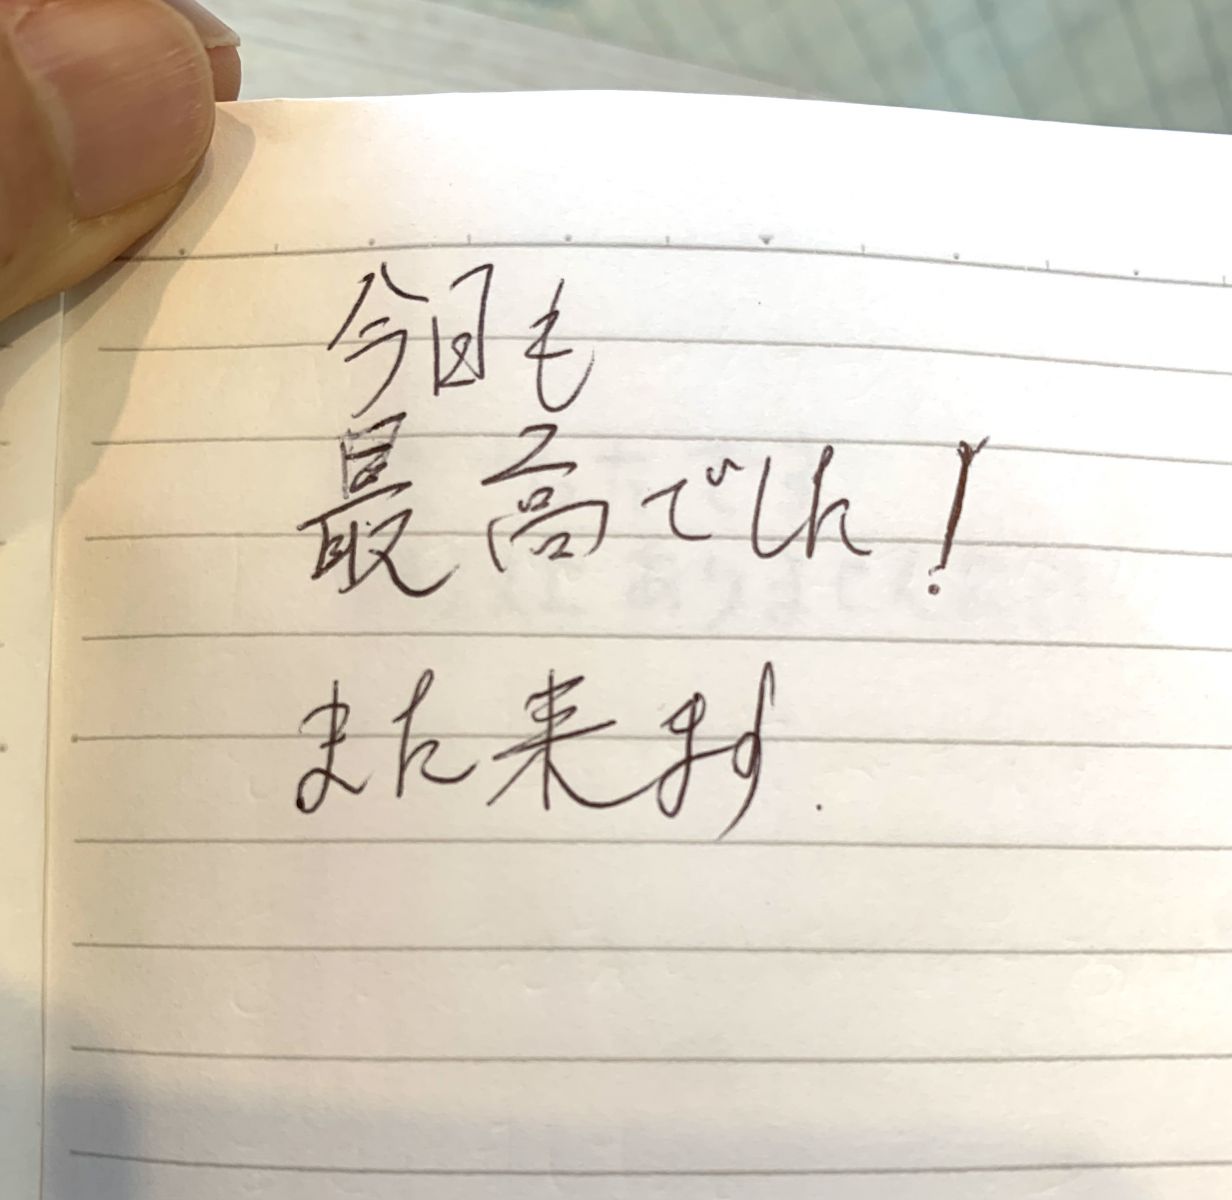 今回も
最高でした!
また来ます.